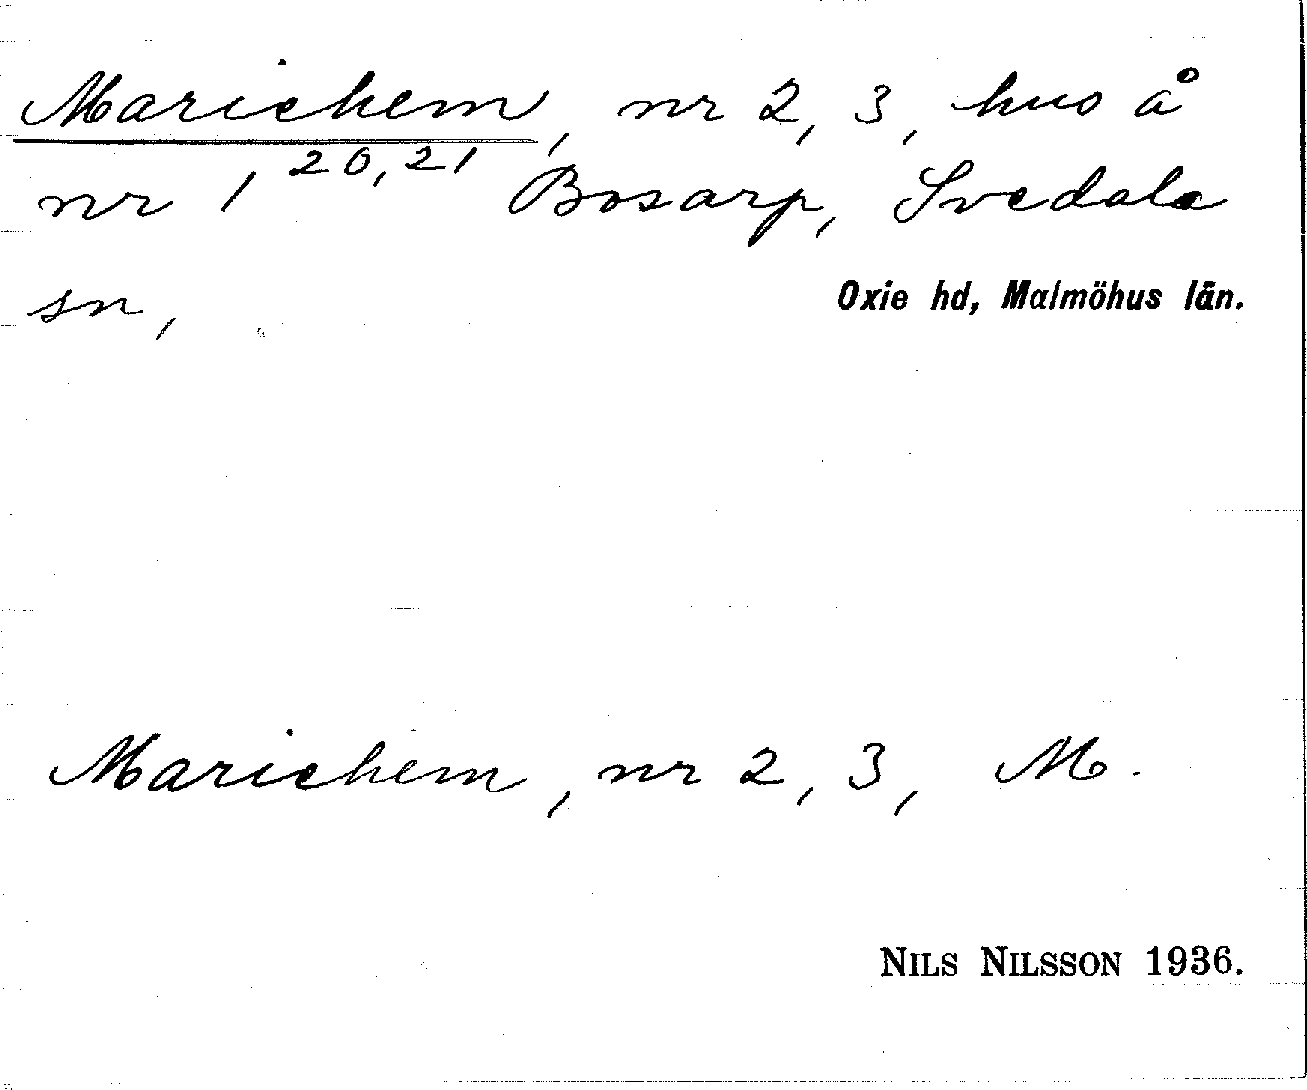 Mariehem, nr 2, 3, hus å
nr 1 20, 21 Bosarp, Svedala
sn,
Oxie hd, Malmöhus län.
Mariehem, nr 2, 3, M.
NILS NILSSON 1936.